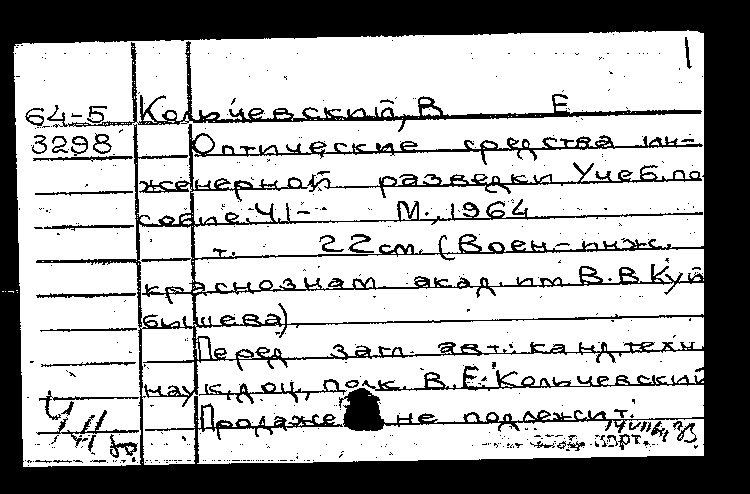 64-5 Кольчевский, В Е
3298 Оптические средства ин-
женерной разведки. Учеб. по
собие. Ч.1- М., 1964
т. 22 см. (Воен-инж.
краснознам. акад. им В. В. Куй
бышева).
Перед загл. авт.: канд. техн.
наук, доц., полк. В. Е. Кольчевский
Продаже не подлежит.